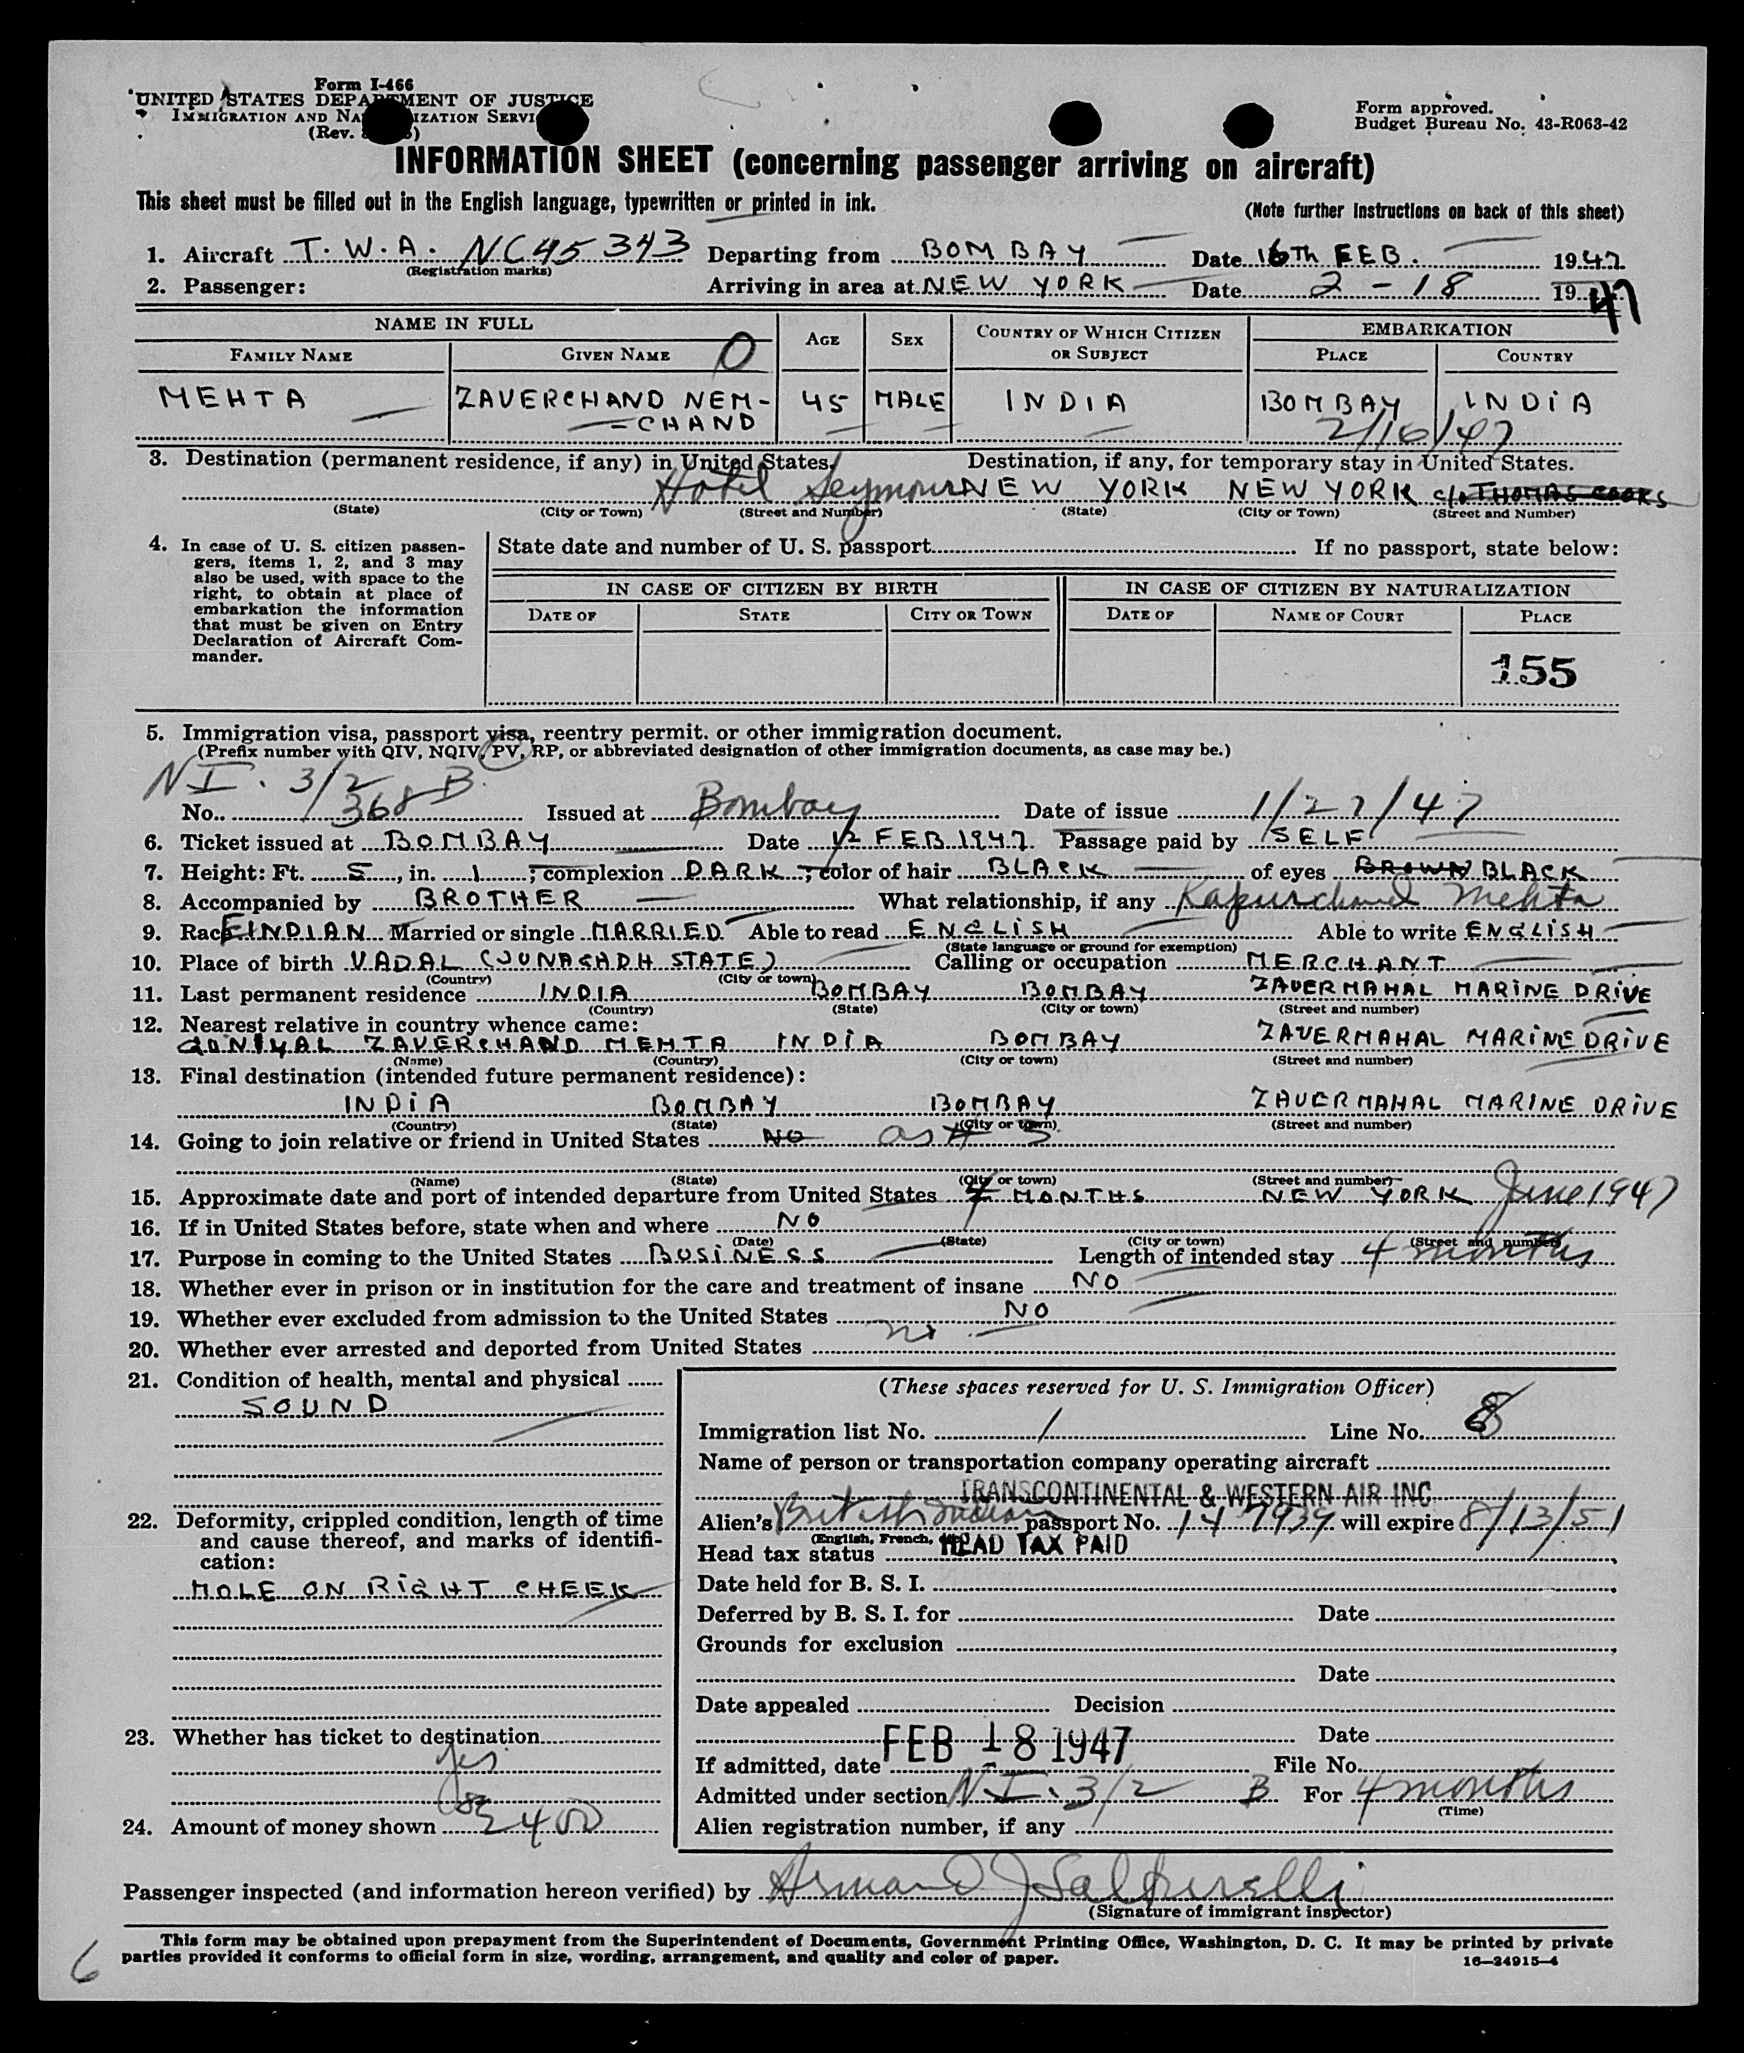 Form I-466
UNITED STATES DEPARTMENT OF JUSTICE
IMMIGRATION AND NA IZATION SERVI
(Rev.
Form approved.
Budget Bureau No. 43-R063-42
INFORMATION SHEET (concerning passenger arriving on aircraft)
This sheet must be filled out in the English language, typewritten or printed in ink.
(Note further instructions on back of this sheet)
1. Aircraft T. W. A. NC 45 343 Departing from BOMBAY Date 16TH FEB. 1947
(Registration marks)
2. Passenger: Arriving in area at NEW YORK Date 2 - 18 1947
NAME IN FULL
FAMILY NAME GIVEN NAME O AGE SEX COUNTRY OF WHICH CITIZEN OR SUBJECT EMBARKATION
PLACE COUNTRY
MEHTA ZAVERCHAND NEM- 45 MALE INDIA BOMBAY INDIA
-CHAND 2/16/47
3. Destination (permanent residence, if any) in United States. Destination, if any, for temporary stay in United States.
Hotel Seymour NEW YORK NEW YORK c/o THOMAS COOKS
(State) (City or Town) (Street and Number) (State) (City or Town) (Street and Number)
4. In case of U. S. citizen passengers, items 1, 2, and 3 may also be used, with space to the right, to obtain at place of embarkation the information that must be given on Entry Declaration of Aircraft Commander.
State date and number of U. S. passport If no passport, state below:
IN CASE OF CITIZEN BY BIRTH IN CASE OF CITIZEN BY NATURALIZATION
DATE OF STATE CITY OR TOWN DATE OF NAME OF COURT PLACE
155
5. Immigration visa, passport visa, reentry permit. or other immigration document.
(Prefix number with QIV, NQIV, PV, RP, or abbreviated designation of other immigration documents, as case may be.)
N I. 3/2 B
No. 368 Issued at Bombay Date of issue 1/27/47
6. Ticket issued at BOMBAY Date 12 FEB 1947. Passage paid by SELF
7. Height: Ft. 5, in. 1; complexion DARK; color of hair BLACK of eyes BROWN BLACK
8. Accompanied by BROTHER What relationship, if any Kapurchand Mehta
9. Race E INDIAN Married or single MARRIED Able to read ENGLISH Able to write ENGLISH
(State language or ground for exemption)
10. Place of birth VADAL (JUNAGADH STATE) Calling or occupation MERCHANT
(Country) (City or town)
11. Last permanent residence INDIA BOMBAY BOMBAY ZAVERMAHAL MARINE DRIVE
(Country) (State) (City or town) (Street and number)
12. Nearest relative in country whence came:
ZAVERCHAND MEHTA INDIA BOMBAY ZAVERMAHAL MARINE DRIVE
(Name) (Country) (City or town) (Street and number)
13. Final destination (intended future permanent residence):
INDIA BOMBAY BOMBAY ZAVERMAHAL MARINE DRIVE
(Country) (State) (City or town) (Street and number)
14. Going to join relative or friend in United States NO as # 3
(Name) (State) (City or town) (Street and number)
15. Approximate date and port of intended departure from United States 4 MONTHS NEW YORK June 1947
16. If in United States before, state when and where NO
(Date) (State) (City or town) (Street and number)
17. Purpose in coming to the United States BUSINESS Length of intended stay 4 months
18. Whether ever in prison or in institution for the care and treatment of insane NO
19. Whether ever excluded from admission to the United States NO
20. Whether ever arrested and deported from United States no
21. Condition of health, mental and physical
SOUND
22. Deformity, crippled condition, length of time and cause thereof, and marks of identification:
MOLE ON RIGHT CHEEK
23. Whether has ticket to destination
Yes
24. Amount of money shown 2400
(These spaces reserved for U. S. Immigration Officer)
Immigration list No. 1 Line No. 8
Name of person or transportation company operating aircraft
TRANSCONTINENTAL & WESTERN AIR INC
Alien's British Indian passport No. 147939 will expire 8/13/51
(English, French, etc.)
Head tax status HEAD TAX PAID
Date held for B. S. I.
Deferred by B. S. I. for Date
Grounds for exclusion
Date
Date appealed Decision
Date
If admitted, date FEB 18 1947 File No.
Admitted under section N I. 3/2 B For 4 months
(Time)
Alien registration number, if any
Passenger inspected (and information hereon verified) by Armand J
(Signature of immigrant inspector)
This form may be obtained upon prepayment from the Superintendent of Documents, Government Printing Office, Washington, D. C. It may be printed by private
parties provided it conforms to official form in size, wording, arrangement, and quality and color of paper.
16—24915-4
6